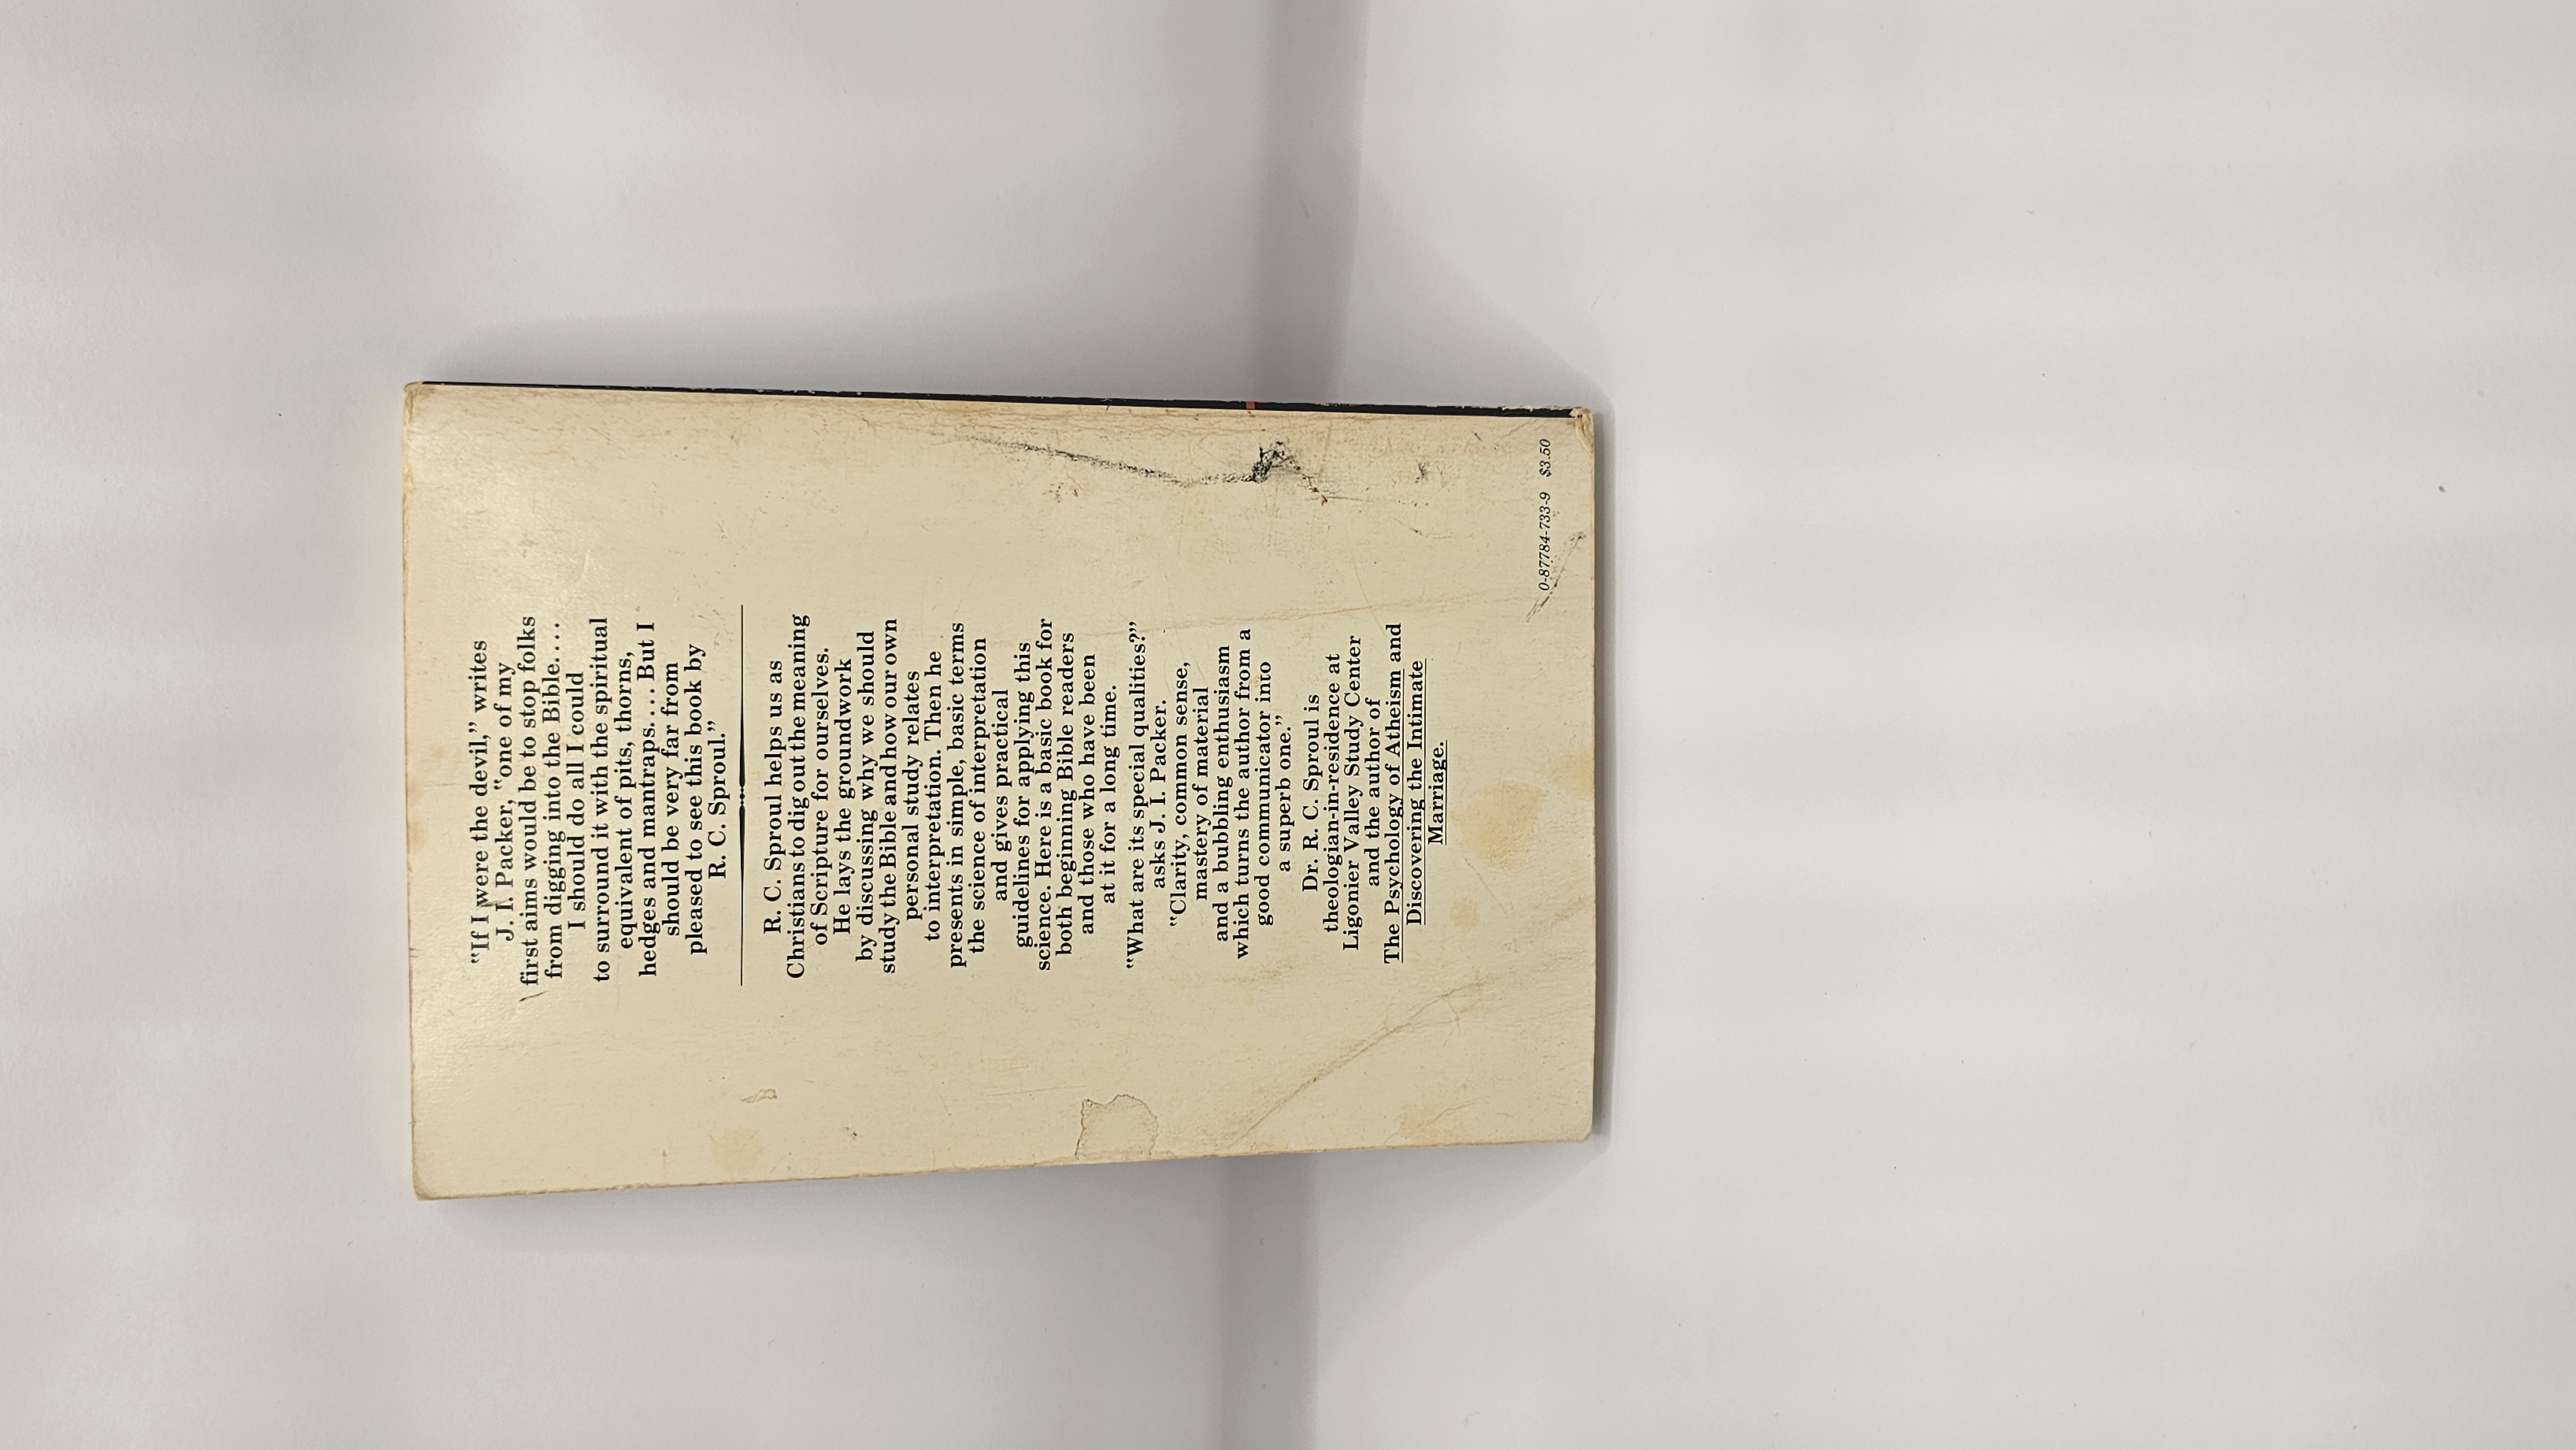 "If I were the devil," writes
J. I. Packer, "one of my
first aims would be to stop folks
from digging into the Bible....
I should do all I could
to surround it with the spiritual
equivalent of pits, thorns,
hedges and mantraps.... But I
should be very far from
pleased to see this book by
R. C. Sproul."
R. C. Sproul helps us as
Christians to dig out the meaning
of Scripture for ourselves.
He lays the groundwork
by discussing why we should
study the Bible and how our own
personal study relates
to interpretation. Then he
presents in simple, basic terms
the science of interpretation
and gives practical
guidelines for applying this
science. Here is a basic book for
both beginning Bible readers
and those who have been
at it for a long time.
"What are its special qualities?"
asks J. I. Packer.
"Clarity, common sense,
mastery of material
and a bubbling enthusiasm
which turns the author from a
good communicator into
a superb one."
Dr. R. C. Sproul is
theologian-in-residence at
Ligonier Valley Study Center
and the author of
The Psychology of Atheism and
Discovering the Intimate
Marriage.
0-87784-733-9 $3.50